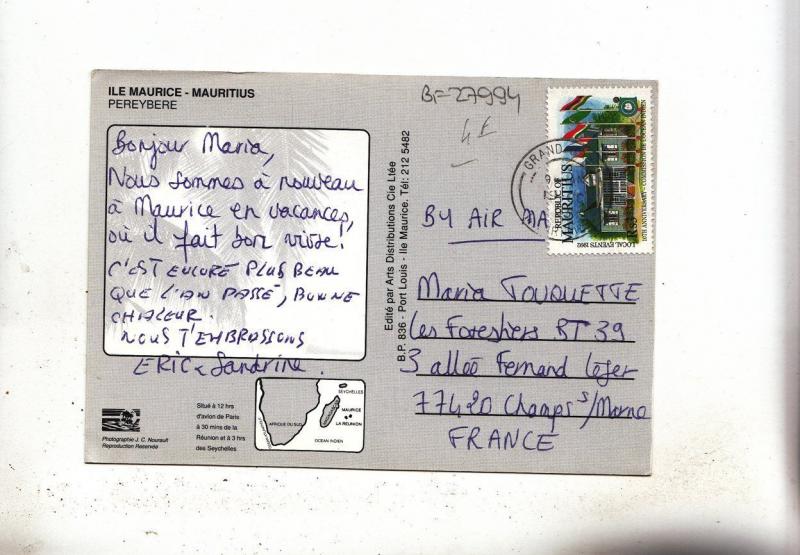 ILE MAURICE - MAURITIUS
PEREYBERE
Bonjour Maria,
Nous sommes à nouveau
à Maurice en vacances,
où il fait bon vivre.
C'EST ENCORE PLUS BEAU
QUE L'AN PASSÉ, BONNE
CHALEUR.
NOUS T'EMBRASSONS
ERIC & Sandrine.
Photographie J. C. Nourault
Reproduction Reservée
Situé à 12 hrs
d'avion de Paris
à 30 mins de la
Réunion et à 3 hrs
des Seychelles
SEYCHELLES
MADAGASCAR
MAURICE
LA REUNION
AFRIQUE DU SUD
OCEAN INDIEN
Edité par Arts Distributions Cie Ltée
B.P. 836 - Port Louis - Ile Maurice. Tél: 212 5482
BF=27994
4€
GRAND
REPUBLIC OF
MAURITIUS
LOCAL EVENTS 1992
10TH ANNIVERSARY - COMMISSION DE L'OCEAN INDIEN
BY AIR MA
Maria TOUQUETTE
Les Forestiers BT 39
3 allée Fernand Léger
77420 Champs s/Marne
FRANCE